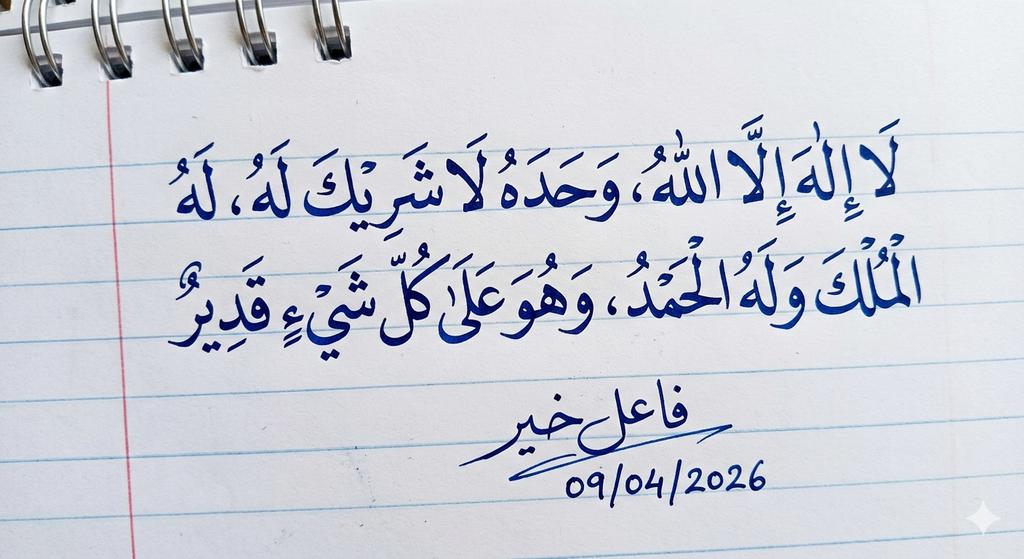 لَا إِلٰهَ إِلَّا اللهُ، وَحَدَهُ لَا شَرِيْكَ لَهُ، لَهُ
الْمُلْكَ وَلَهُ الْحَمْدُ، وَهُوَ عَلَىٰ كُلّ شَيْءٍ قَدِيرٌ
فاعل خير
09/04/2026